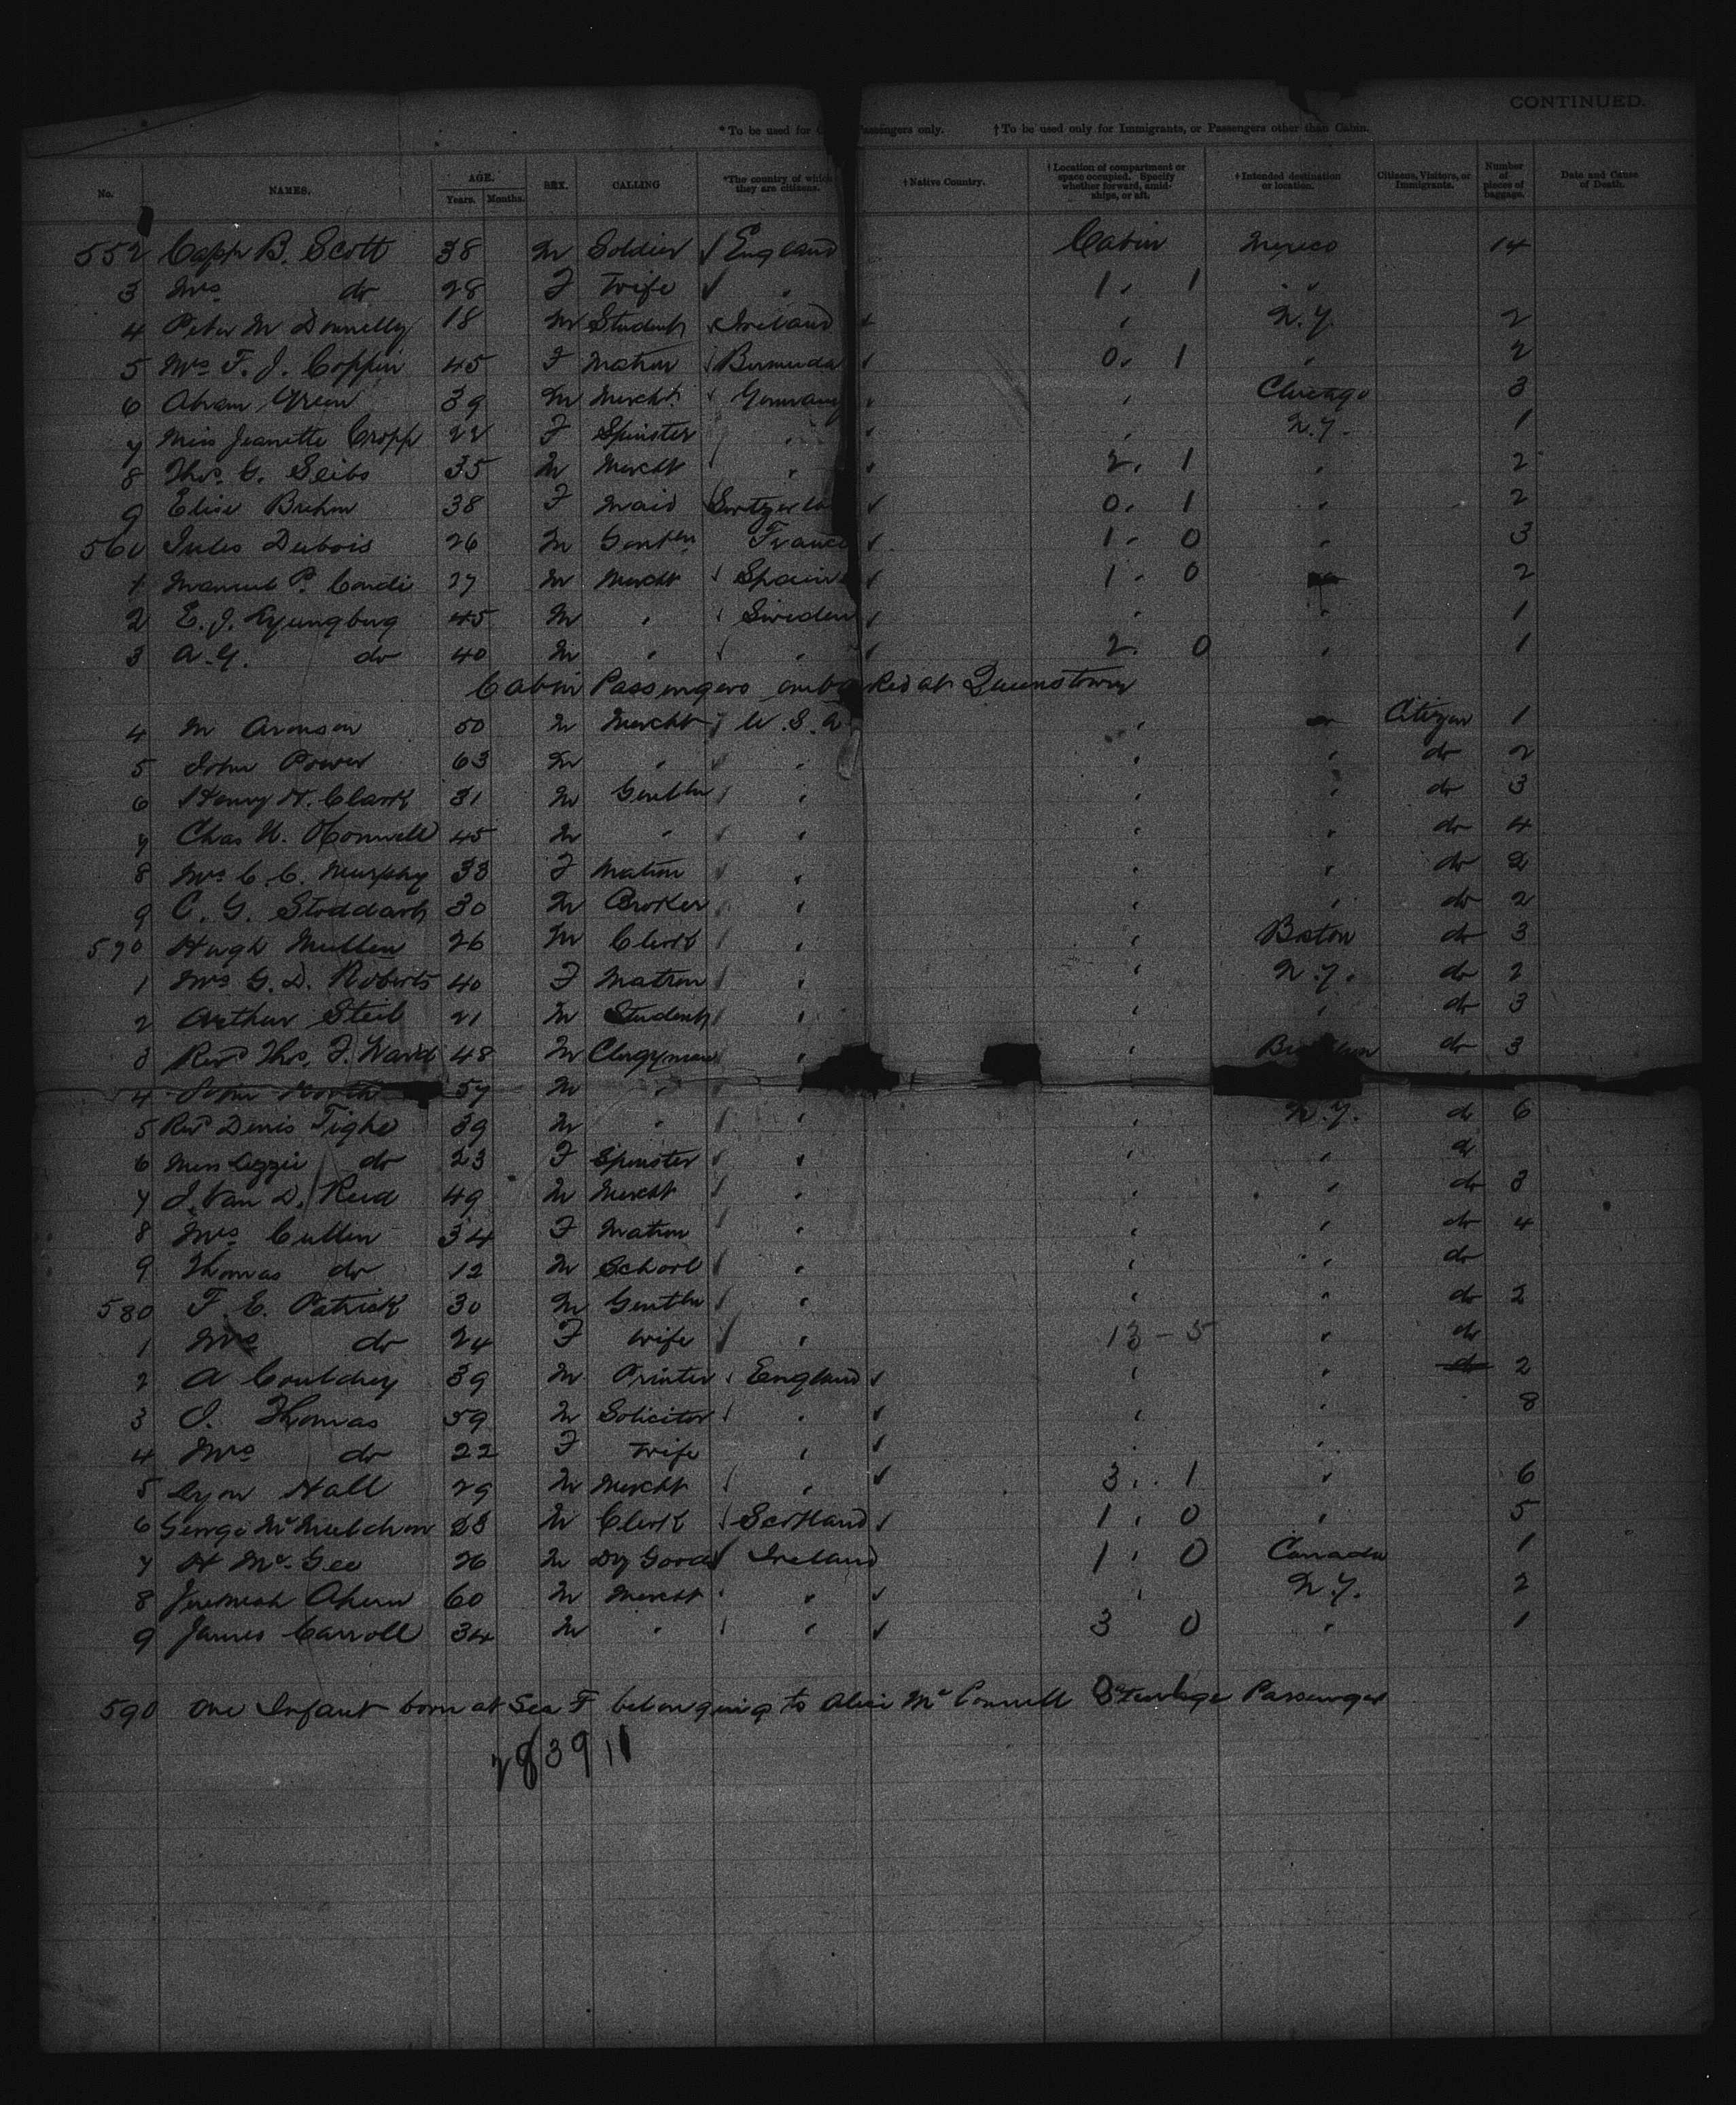 CONTINUED.
* To be used for Passengers only. † To be used only for Immigrants, or Passengers other than Cabin.
No. NAMES. AGE. Years. Months. SEX. CALLING *The country of which they are citizens. † Native Country. † Location of compartment or space occupied. Specify whether forward, amidships, or aft. † Intended destination or location. Citizens, Visitors, or Immigrants. Number of pieces of baggage. Date and Cause of Death.
552 Capt B. Scott 38 M Soldier England Cabin Mexico 14
3 Mrs do 28 F Wife " 1 . 1 "
4 Peter M Donnelly 18 M Student Ireland " N.Y. 2
5 Mrs F. J. Coppin 45 F Matron Bermuda 0 . 1 " 2
6 Abram Green 39 M Mercht Germany " Chicago 3
7 Miss Jeanette Cropp 22 F Spinster " " N.Y. 1
8 Thos. G. Seibs 35 M Mercht " 2 . 1 " 2
9 Elise Brehm 38 F Maid 0 . 1 " 2
560 Jules Dubois 26 M Gentln France 1 . 0 " 3
1 Manuel P. Conde 27 M Mercht Spain 1 . 0 2
2 E. J. Lyungberg 45 M " Sweden " " 1
3 A. G. do 40 M " " 2 . 0 " 1
Cabin Passengers embarked at Queenstown
4 M Aronson 50 M Mercht U.S.A " Citizen 1
5 John Power 63 M " " " " do 2
6 Henry H. Clark 31 M Gentln " " " do 3
7 Chas 45 M " " " " do 4
8 Mrs C. C. Murphy 33 F Matron " " " do 2
9 C. G. Stoddart 30 M Broker " " " do 2
570 Hugh Mullen 26 M Clerk " " Boston do 3
1 Mrs G. D. Roberts 40 F Matron " " N.Y. do 2
2 Arthur Steib 21 M Student " " " do 3
3 Revd Thos. F. Ward 48 M Clergyman " " do 3
4 John North 57 M "
5 Revd Denis Tighe 39 M " " " N.Y. do 6
6 Miss Lizzie do 23 F Spinster " " " do
7 J. Van D. Reed 49 M Mercht " " " do 3
8 Mrs Cullen 34 F Matron " " " do 4
9 Thomas do 12 M School " " " do
580 F. E. Patrick 30 M Gentln " " " do 2
1 Mrs do 24 F Wife " 13 - 5 " do
2 A Couldrey 39 M Printer England " " do 2
3 J. Thomas 59 M Solicitor " " " 8
4 Mrs do 22 F Wife " " "
5 Lyon Hall 29 M Mercht " 3 . 1 " 6
6 George McMutchon M Clerk Scotland 1 . 0 " 5
7 H McGee 26 M Dry Goods Ireland 1 . 0 Canada 1
8 Jeremiah Ahern 60 M Mercht " " N.Y. 2
9 James Carroll 34 M " " 3 0 " 1
590 One Infant born at Sea F belonging to Alice McConnell Steerage Passenger